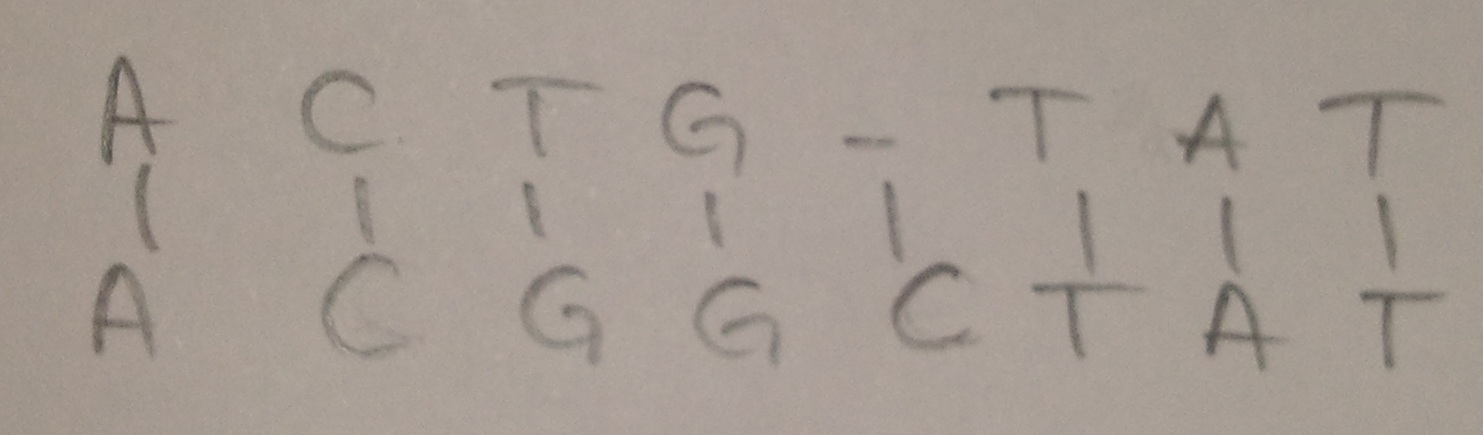 A C T G - T A T
| | | | | | | |
A C G G C T A T